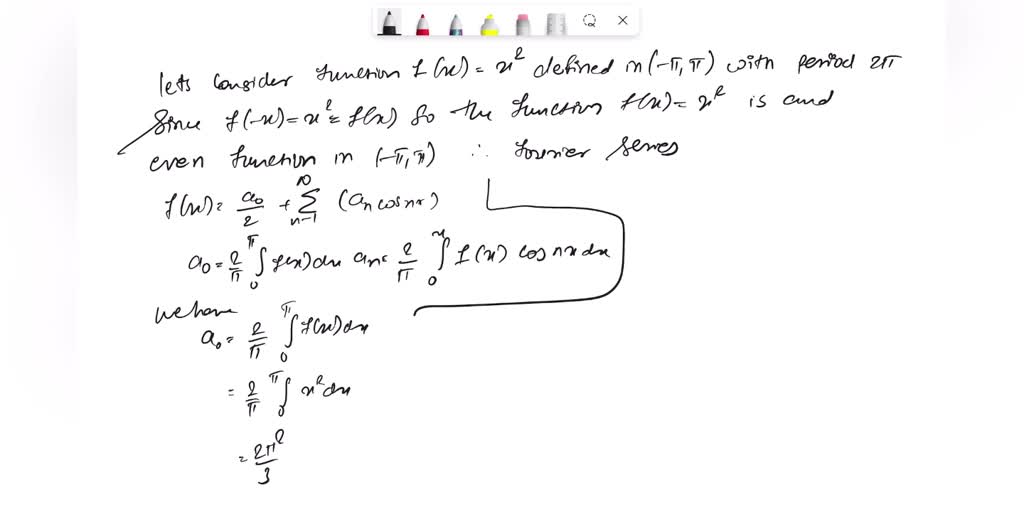 lets consider function f(x) = x² defined in (-π, π) with period 2π
Since f(-x) = x² = f(x) So the function f(x) = x² is and
even function in (-π, π) ∴ fourier series
f(x) = a₀/2 + ∑_{n=1}^{∞} (aₙ cos nx)
a₀ = 2/π ∫₀^π f(x) dx aₙ = 2/π ∫₀^π f(x) cos nx dx
we have
a₀ = 2/π ∫₀^π f(x) dx
= 2/π ∫₀^π x² dx
= 2π²/3